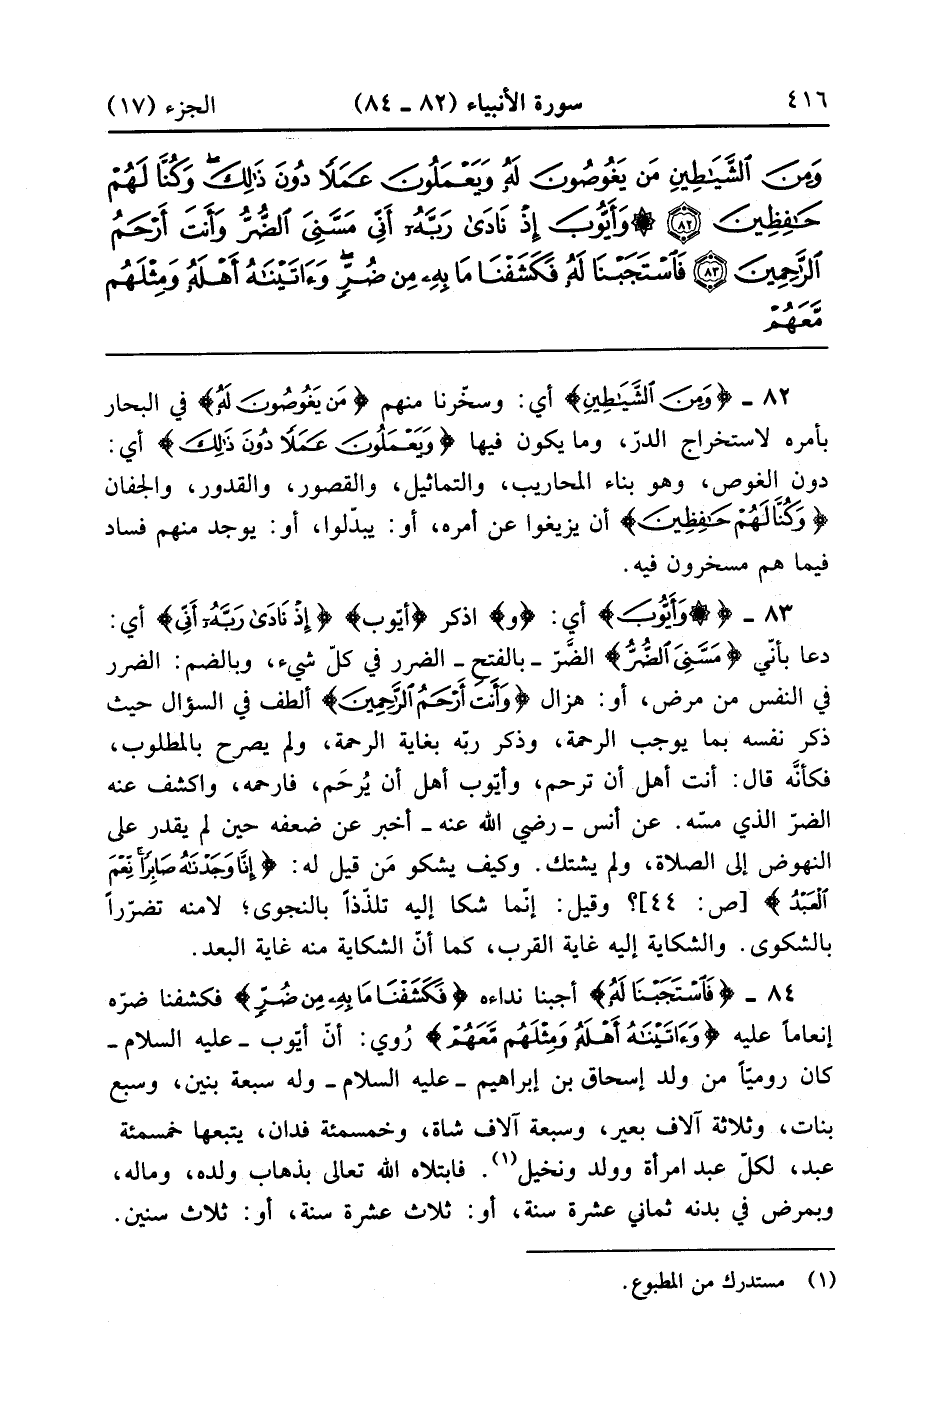 ٤١٦ سورة الأنبياء (٨٢ ـ ٨٤) الجزء (١٧)
وَمِنَ ٱلشَّيَٰطِينِ مَن يَغُوصُونَ لَهُۥ وَيَعْمَلُونَ عَمَلًا دُونَ ذَٰلِكَ ۖ وَكُنَّا لَهُمْ
حَٰفِظِينَ ﴿٨٢﴾ ۞ وَأَيُّوبَ إِذْ نَادَىٰ رَبَّهُۥٓ أَنِّي مَسَّنِيَ ٱلضُّرُّ وَأَنتَ أَرْحَمُ
ٱلرَّٰحِمِينَ ﴿٨٣﴾ فَٱسْتَجَبْنَا لَهُۥ فَكَشَفْنَا مَا بِهِۦ مِن ضُرٍّ ۖ وَءَاتَيْنَٰهُ أَهْلَهُۥ وَمِثْلَهُم
مَّعَهُمْ
٨٢ ـ ﴿وَمِنَ ٱلشَّيَٰطِينِ﴾ أي: وسخّرنا منهم ﴿مَن يَغُوصُونَ لَهُۥ﴾ في البحار
بأمره لاستخراج الدرّ، وما يكون فيها ﴿وَيَعْمَلُونَ عَمَلًا دُونَ ذَٰلِكَ﴾ أي:
دون الغوص، وهو بناء المحاريب، والتماثيل، والقصور، والقدور، والجفان
﴿وَكُنَّا لَهُمْ حَٰفِظِينَ﴾ أن يزيغوا عن أمره، أو: يبدّلوا، أو: يوجد منهم فساد
فيما هم مسخرون فيه.
٨٣ ـ ﴿۞ وَأَيُّوبَ﴾ أي: ﴿و﴾ اذكر ﴿أيّوب﴾ ﴿إِذْ نَادَىٰ رَبَّهُۥٓ أَنِّي﴾ أي:
دعا بأنّي ﴿مَسَّنِيَ ٱلضُّرُّ﴾ الضَّرّ ـ بالفتح ـ الضرر في كلّ شيء، وبالضم: الضرر
في النفس من مرض، أو: هزال ﴿وَأَنتَ أَرْحَمُ ٱلرَّٰحِمِينَ﴾ ألطف في السؤال حيث
ذكر نفسه بما يوجب الرحمة، وذكر ربّه بغاية الرحمة، ولم يصرح بالمطلوب،
فكأنَّه قال: أنت أهل أن ترحم، وأيّوب أهل أن يُرحَم، فارحمه، واكشف عنه
الضرّ الذي مسّه. عن أنس ـ رضي الله عنه ـ أخبر عن ضعفه حين لم يقدر على
النهوض إلى الصلاة، ولم يشتك. وكيف يشكو مَن قيل له: ﴿إِنَّا وَجَدْنَٰهُ صَابِرًا ۚ نِّعْمَ
ٱلْعَبْدُ﴾ [ص: ٤٤]؟ وقيل: إنّما شكا إليه تلذّذاً بالنجوى؛ لامنه تضرّراً
بالشكوى. والشكاية إليه غاية القرب، كما أنّ الشكاية منه غاية البعد.
٨٤ ـ ﴿فَٱسْتَجَبْنَا لَهُۥ﴾ أجبنا نداءه ﴿فَكَشَفْنَا مَا بِهِۦ مِن ضُرٍّ﴾ فكشفنا ضرّه
إنعاماً عليه ﴿وَءَاتَيْنَٰهُ أَهْلَهُۥ وَمِثْلَهُم مَّعَهُمْ﴾ رُوي: أنّ أيّوب ـ عليه السلام ـ
كان روميّاً من ولد إسحاق بن إبراهيم ـ عليه السلام ـ وله سبعة بنين، وسبع
بنات، وثلاثة آلاف بعير، وسبعة آلاف شاة، وخمسمئة فدان، يتبعها خمسمئة
عبد، لكلّ عبد امرأة وولد ونخيل(١). فابتلاه الله تعالى بذهاب ولده، وماله،
وبمرض في بدنه ثماني عشرة سنة، أو: ثلاث عشرة سنة، أو: ثلاث سنين.
(١) مستدرك من المطبوع.